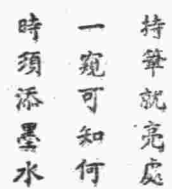 持筆就亮處
一窺可知何
時須添墨水